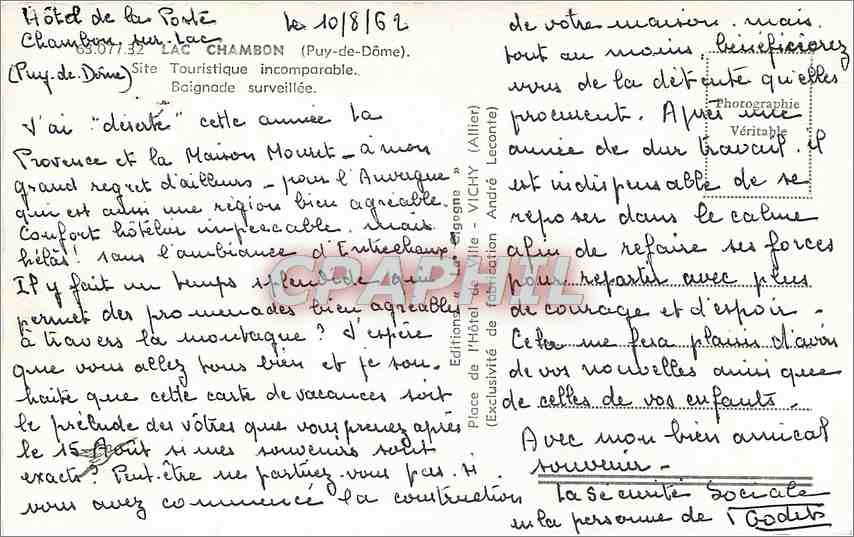 Hôtel de la Poste
Chambon-sur-Lac
(Puy-de-Dôme)
le 10/8/62
63.077.32 LAC CHAMBON (Puy-de-Dôme).
Site Touristique incomparable.
Baignade surveillée.
J'ai "déserté" cette année la
Provence et la Maison Mouret - à mon
grand regret d'ailleurs - pour l'Auvergne
qui est aussi une région bien agréable.
Confort hôtelier impeccable, mais
hélas! sans l'ambiance d'Entrechaux!
Il y fait un temps splendide qui
permet des promenades bien agréables
à travers la montagne? J'espère
que vous allez tous bien et je sou-
haite que cette carte de vacances soit
le prélude des vôtres que vous prenez après
le 15 Août si mes souvenirs sont
exacts? Peut-être ne partirez-vous pas, si
vous avez commencé la construction
Editions " La Cigogne "
Place de l'Hôtel de Ville - VICHY (Allier)
(Exclusivité de fabrication André Leconte)
Photographie
Véritable
de votre maison, mais
tout au moins, bénéficierez
vous de la détente qu'elles
procurent. Après une
année de dur travail, il
est indispensable de se
reposer dans le calme
afin de refaire ses forces
pour repartir avec plus
de courage et d'espoir -
Cela me fera plaisir d'avoir
de vos nouvelles ainsi que
de celles de vos enfants -
Avec mon bien amical
souvenir -
La Sécurité Sociale
en la personne de
CPAPHIL